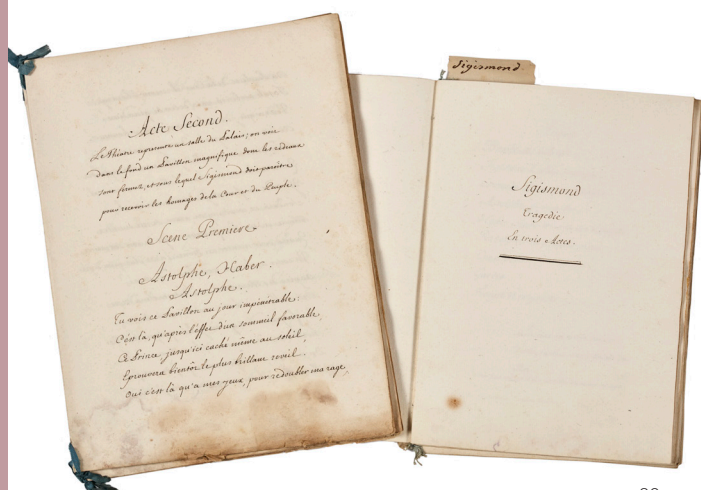 Acte Second.
Le Théatre represente un salle du Palais; on voit
dans le fond un Pavillon magnifique dont les rideaux
sont fermés, et sous lequel Sigismond doit paroître
pour recevoir les homages de la Cour et du Peuple.
Scene Premiere
Astolphe, Haber.
Astolphe.
Tu vois ce Pavillon au jour impénétrable;
C'est là, qu'après l'effet d'un sommeil favorable
Ce Prince, jusqu'ici caché même au soleil,
Eprouvera bientôt le plus brillant reveil.
Oui c'est là qu'a mes yeux, pour redoubler ma rage
Sigismond
Sigismond
Tragedie
En trois Actes.